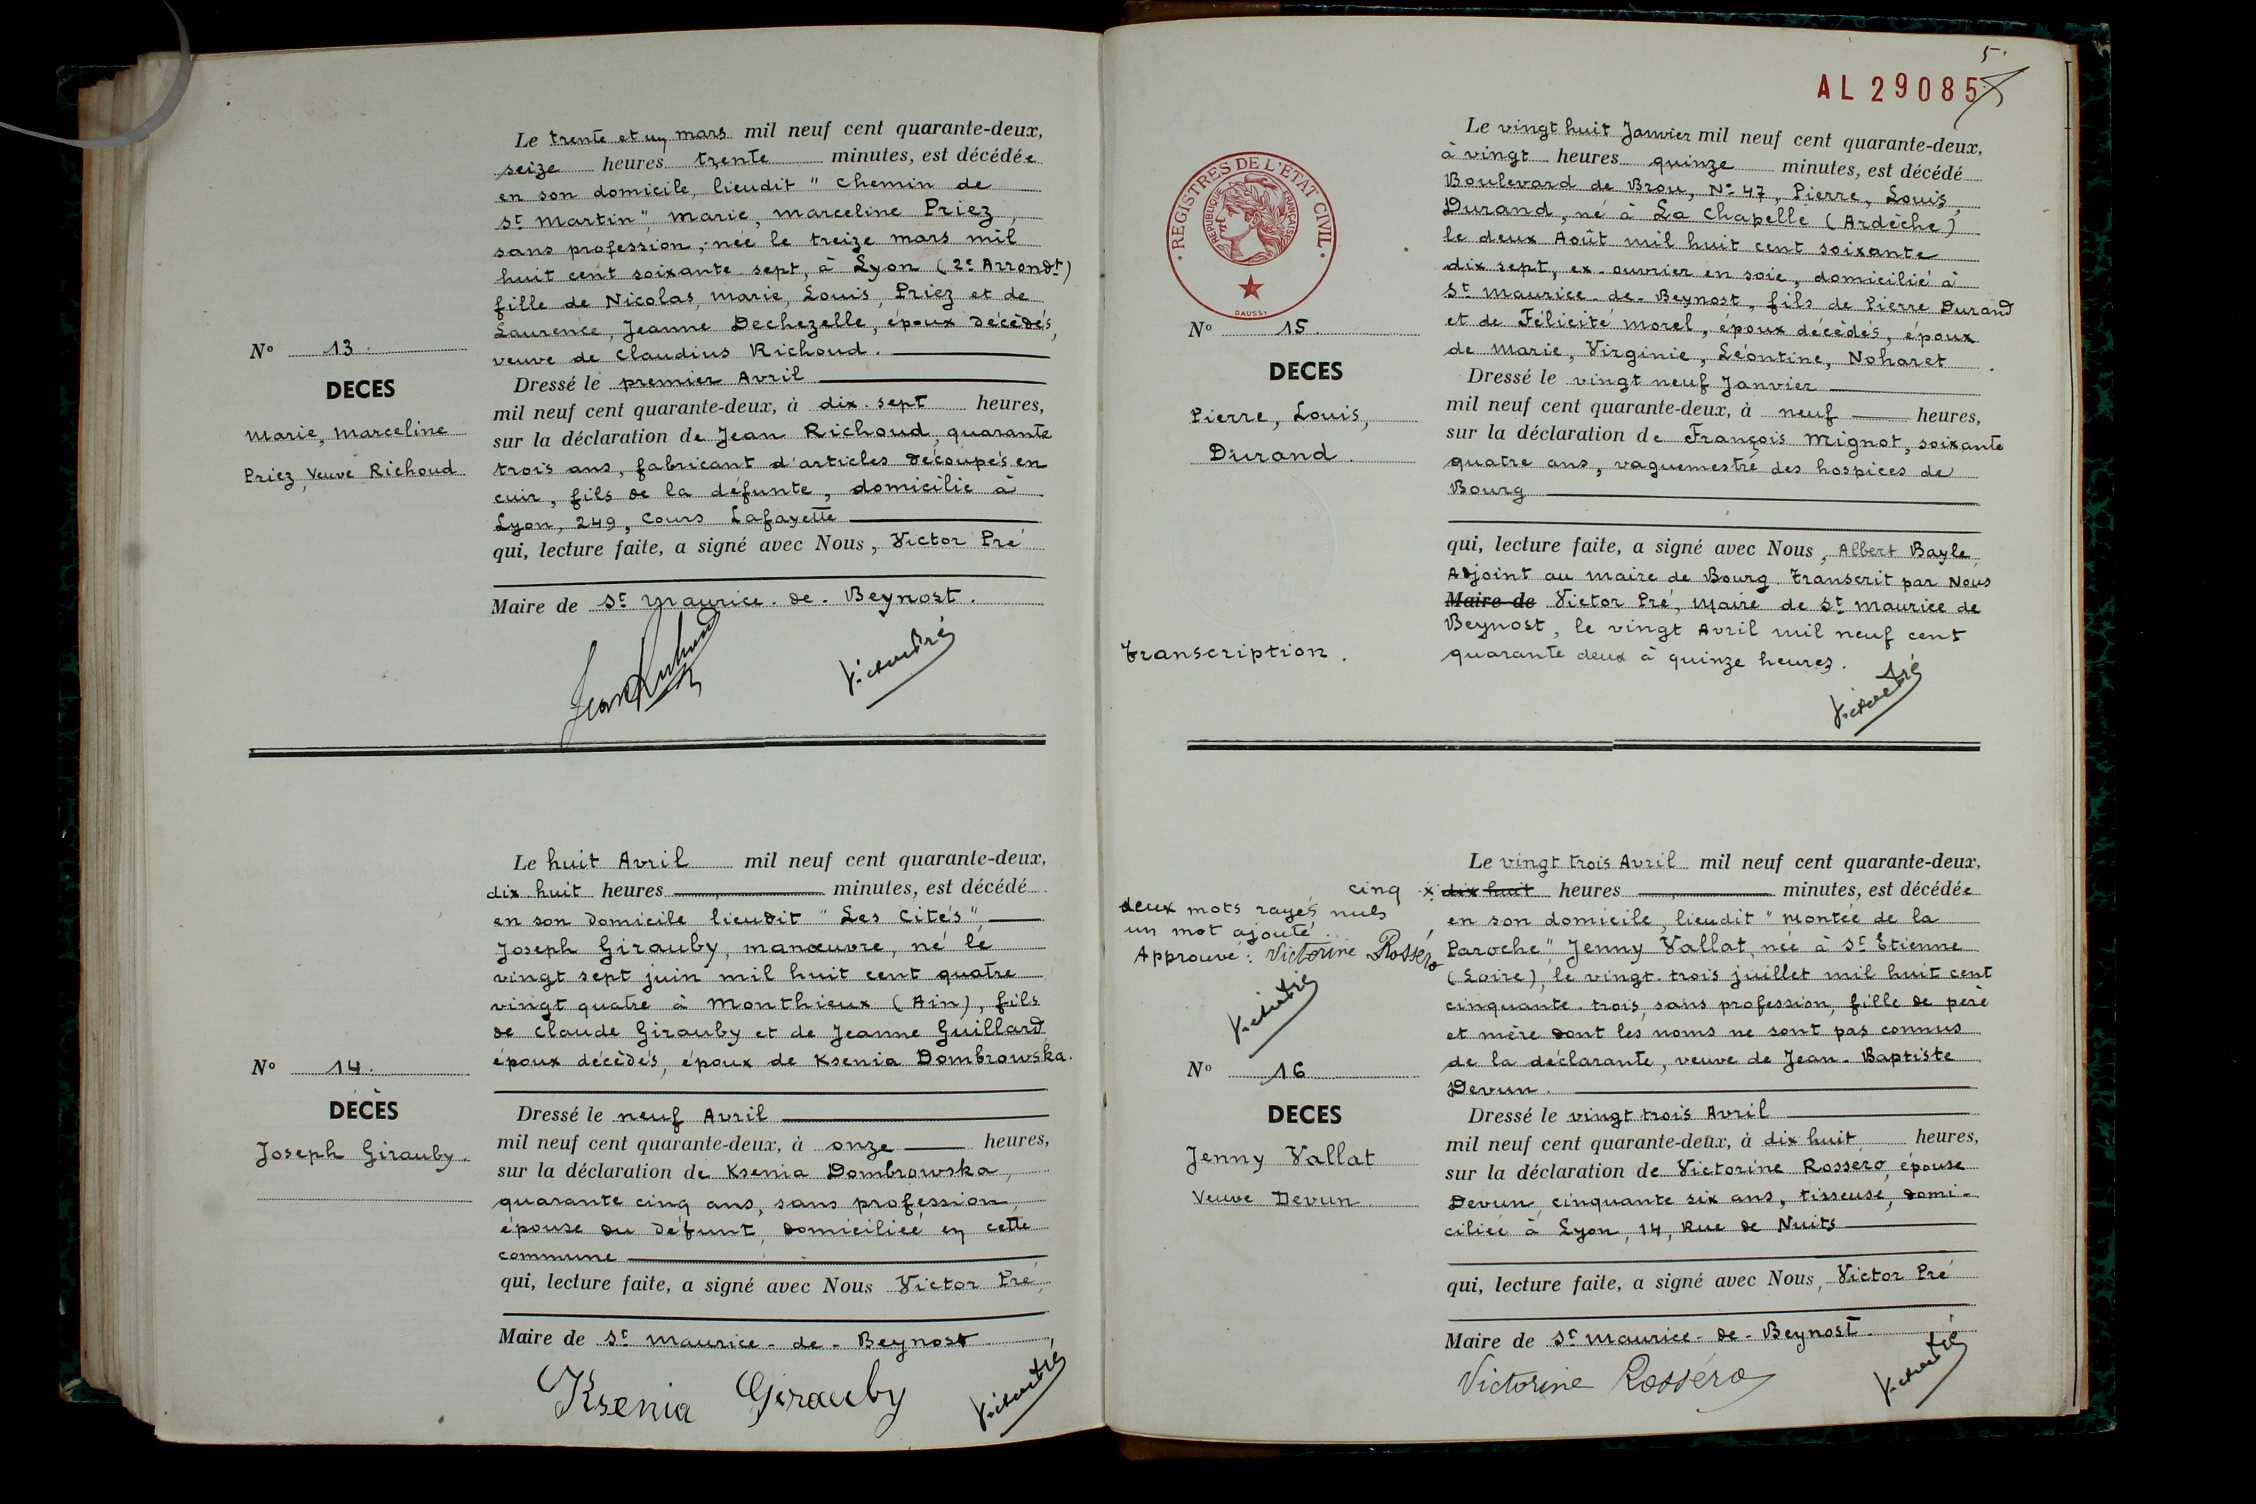 Le trente et un mars mil neuf cent quarante-deux,
seize heures trente minutes, est décédée
en son domicile, lieudit " Chemin de
St Martin", Marie, Marceline Priez,
sans profession, née le treize mars mil
huit cent soixante sept, à Lyon (2e Arrondt)
fille de Nicolas, Marie, Louis, Priez et de
Laurence, Jeanne Dechezelle, époux décédés,
veuve de Claudius Richoud.
N° 13.
DECES
Marie, Marceline
Priez, Veuve Richoud
Dressé le premier Avril
mil neuf cent quarante-deux, à dix-sept heures,
sur la déclaration de Jean Richoud, quarante
trois ans, fabricant d'articles découpés en
cuir, fils de la défunte, domicilié à
Lyon, 249, Cours Lafayette
qui, lecture faite, a signé avec Nous, Victor Pré
Maire de St Maurice-de-Beynost.
Jean Richoud
Victor Pré
Le huit Avril mil neuf cent quarante-deux,
dix huit heures minutes, est décédé
en son domicile lieudit " Les Cités"
Joseph Girauby, manœuvre, né le
vingt sept juin mil huit cent quatre
vingt quatre à Monthieux (Ain), fils
de Claude Girauby et de Jeanne Guillard
époux décédés, époux de Ksenia Dombrowska.
N° 14.
DÉCÈS
Joseph Girauby.
Dressé le neuf Avril
mil neuf cent quarante-deux, à onze heures,
sur la déclaration de Ksenia Dombrowska,
quarante cinq ans, sans profession,
épouse du défunt, domiciliée en cette
commune
qui, lecture faite, a signé avec Nous Victor Pré,
Maire de St Maurice-de-Beynost
Ksenia Girauby
Victor Pré
5.
AL 29085
REGISTRES DE L'ETAT CIVIL
REPUBLIQUE FRANÇAISE
DAUSSY
Le vingt huit Janvier mil neuf cent quarante-deux,
à vingt heures quinze minutes, est décédé
Boulevard de Brou, N° 47, Pierre, Louis,
Durand, né à La Chapelle (Ardèche)
le deux Août mil huit cent soixante
dix sept, ex-ouvrier en soie, domicilié à
St Maurice-de-Beynost, fils de Pierre Durand
et de Félicité Morel, époux décédés, époux
de Marie, Virginie, Léontine, Noharet.
N° 15.
DECES
Pierre, Louis,
Durand.
Dressé le vingt neuf Janvier
mil neuf cent quarante-deux, à neuf heures,
sur la déclaration de François Mignot, soixante
quatre ans, vaguemestre des hospices de
Bourg
qui, lecture faite, a signé avec Nous, Albert Bayle,
Adjoint au Maire de Bourg. Transcrit par Nous
Maire de Victor Pré, Maire de St Maurice de
Beynost, le vingt Avril mil neuf cent
quarante deux à quinze heures.
Transcription.
Victor Pré
Le vingt trois Avril mil neuf cent quarante-deux,
cinq x dix huit heures minutes, est décédée
en son domicile, lieudit "Montée de la
Paroche", Jenny Vallat, née à St Etienne
(Loire), le vingt-trois juillet mil huit cent
cinquante-trois, sans profession, fille de père
et mère dont les noms ne sont pas connus
de la déclarante, veuve de Jean-Baptiste
Devun.
deux mots rayés nuls
un mot ajouté
Approuvé : Victorine Rosséro
Victor Pré
N° 16
DECES
Jenny Vallat
Veuve Devun.
Dressé le vingt trois Avril
mil neuf cent quarante-deux, à dix huit heures,
sur la déclaration de Victorine Rosséro, épouse
Devun, cinquante six ans, tisseuse, domi-
ciliée à Lyon, 14, Rue de Nuits
qui, lecture faite, a signé avec Nous, Victor Pré
Maire de St Maurice-de-Beynost.
Victorine Rosséro
Victor Pré